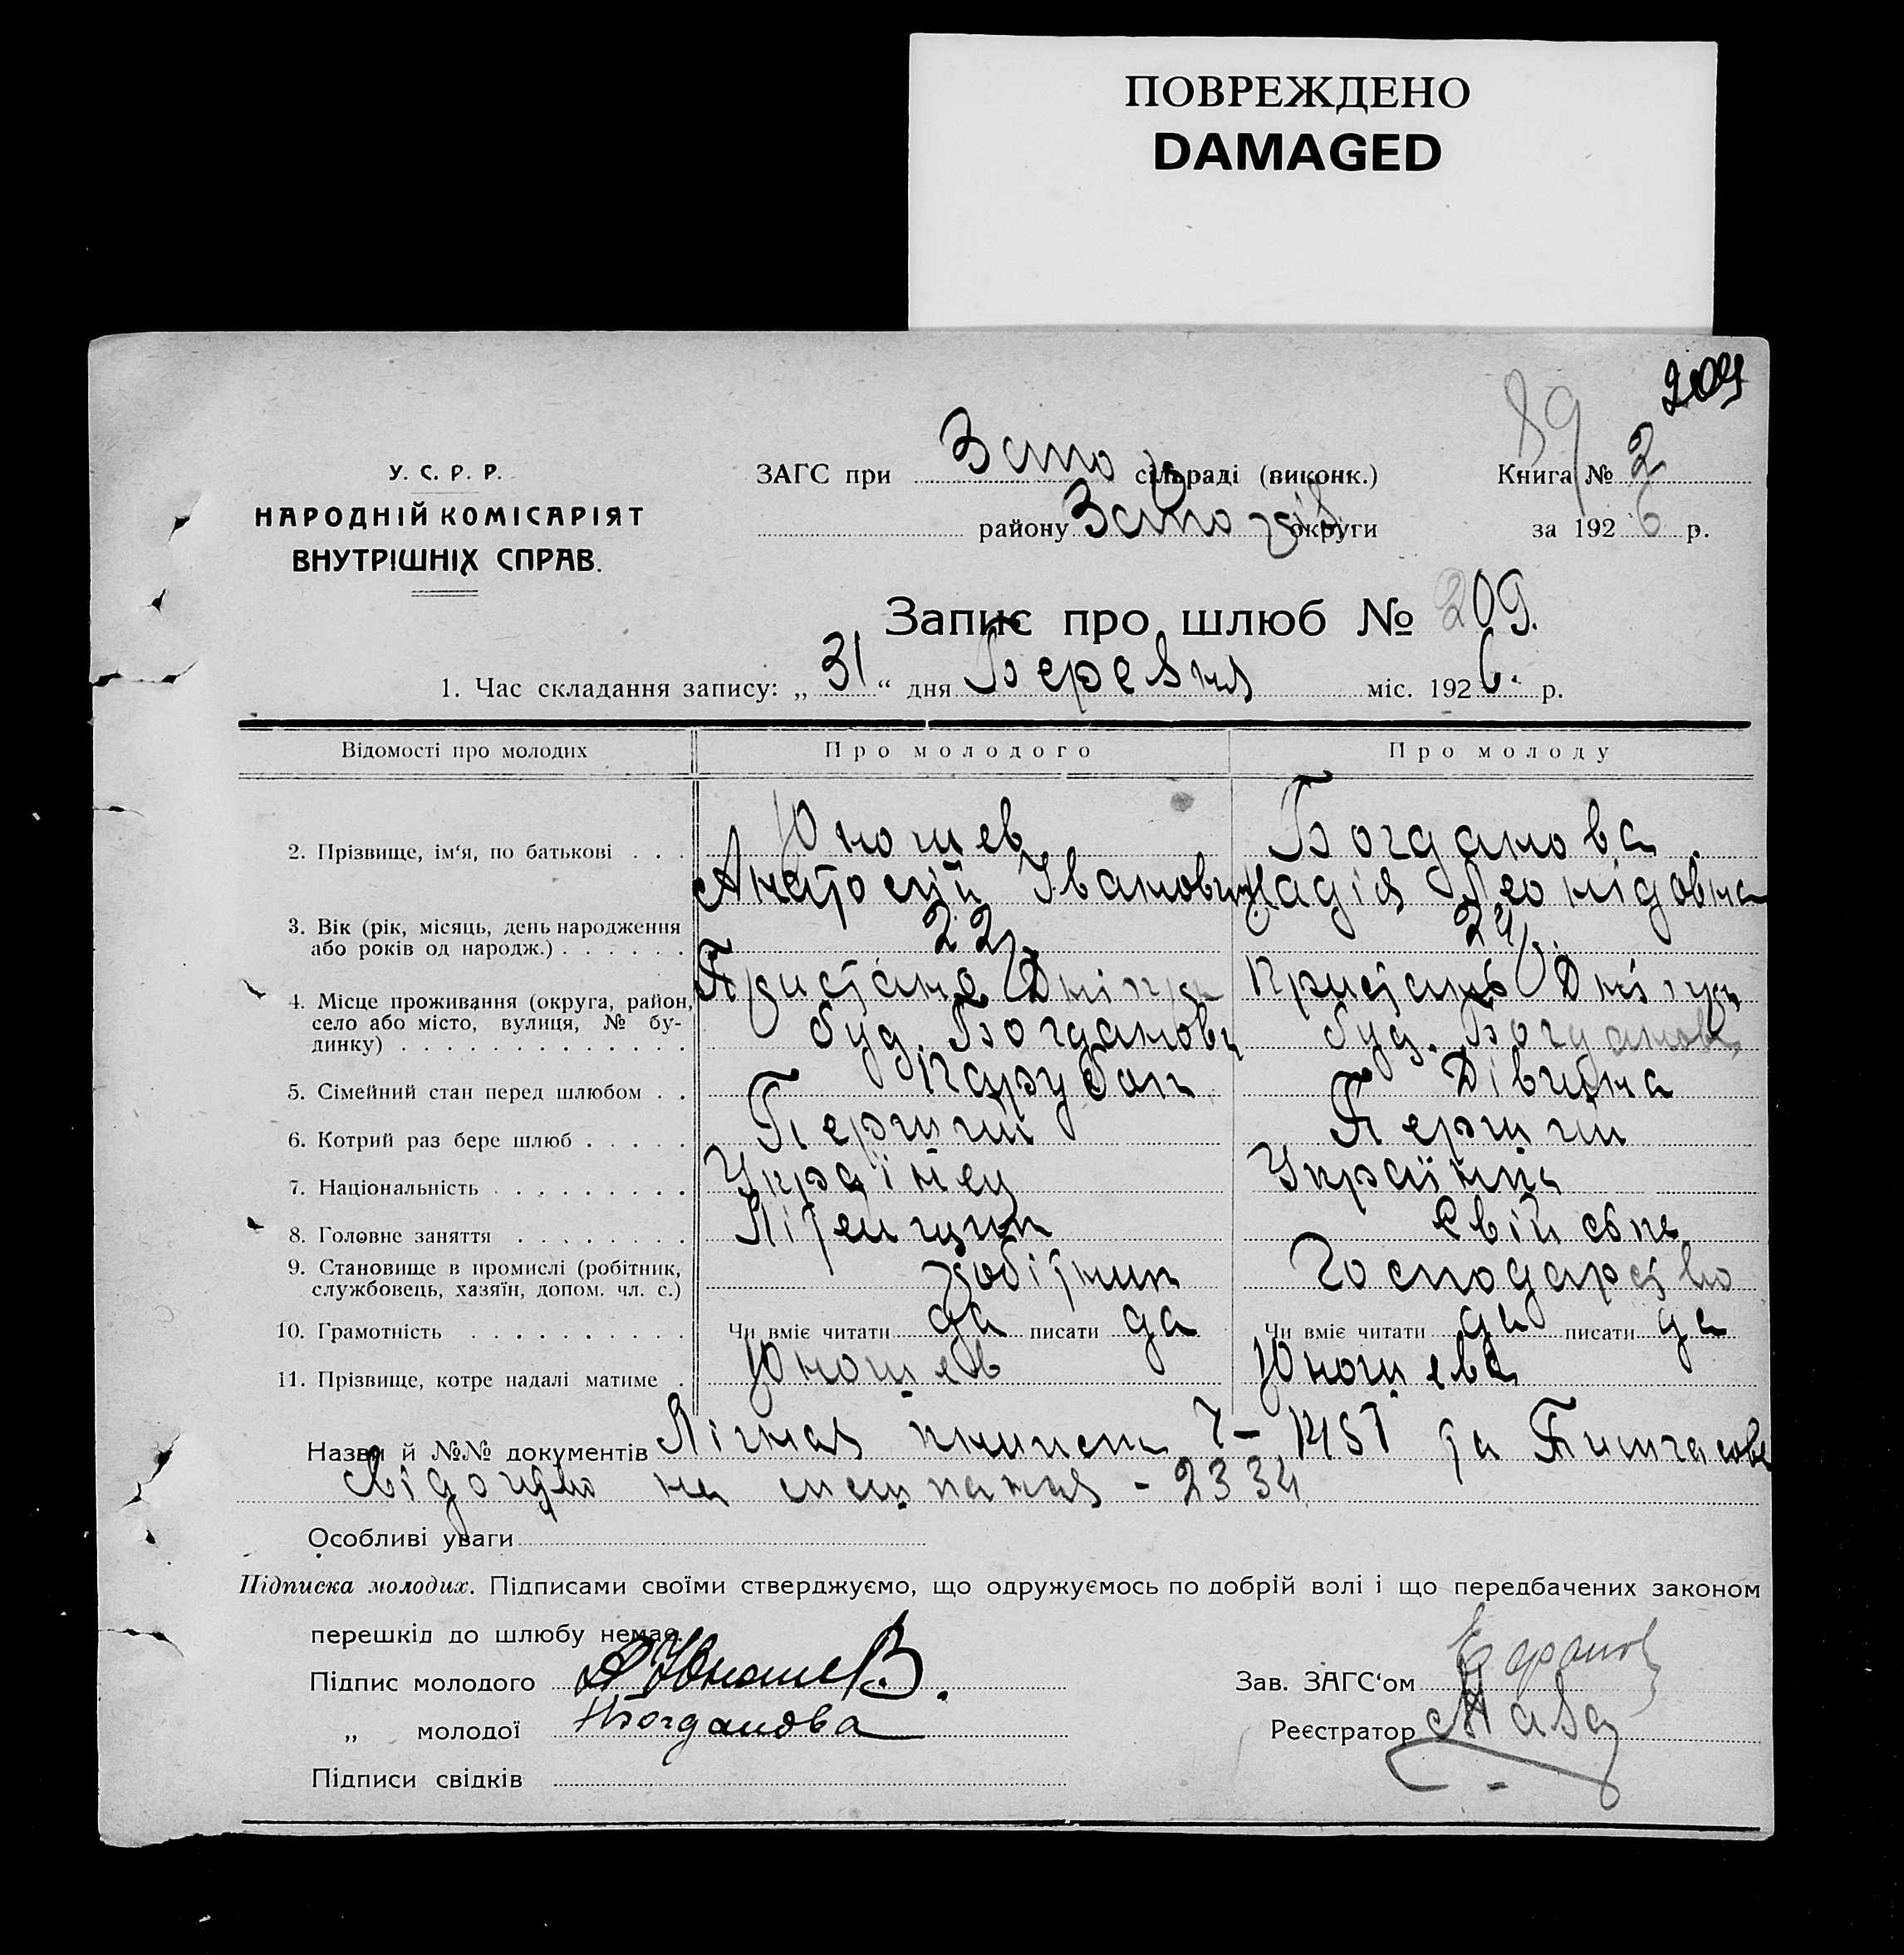 ПОВРЕЖДЕНО
DAMAGED
209
89
У. С. Р. Р.
НАРОДНІЙ КОМІСАРІЯТ
ВНУТРІШНІХ СПРАВ.
ЗАГС при сільраді (виконк.)
Книга № 2
району округи
за 1926 р.
Запис про шлюб № 209.
1. Час складання запису: „31“ дня Березня міс. 1926. р.
Відомості про молодих Про молодого Про молоду
2. Прізвище, ім‘я, по батькові . . . Юношев Богданова
Анатолій Іванович Надія Леонідовна
3. Вік (рік, місяць, день народження
або років од народж.) . . . . . . 22 р. 24 р.
4. Місце проживання (округа, район,
село або місто, вулиця, № бу-
динку) . . . . . . . . . . . . .
Пристань Дніпра Пристань Дніпра
буд. Богданова буд. Богданова
5. Сімейний стан перед шлюбом . . Парубок Дівчина
6. Котрий раз бере шлюб . . . . . Перший Перший
7. Національність . . . . . . . . . Українец Українка
8. Головне заняття . . . . . . . . Свійске
9. Становище в промислі (робітник,
службовець, хазяїн, допом. чл. с.) робітник Господарство
10. Грамотність . . . . . . . . . . Чи вміє читати да писати да Чи вміє читати да писати да
11. Прізвище, котре надалі матиме . Юношев Юношева
Назви й №№ документів Лічная книжка 7– 1451 та Тимчасове
свідоцтво на мешкання - 2334
Особливі уваги
Підписка молодих. Підписами своїми стверджуємо, що одружуємось по добрій волі і що передбачених законом
перешкід до шлюбу немає.
Підпис молодого А Юношев.
Зав. ЗАГС‘ом
„ молодої НБогданова
Реєстратор
Підписи свідків